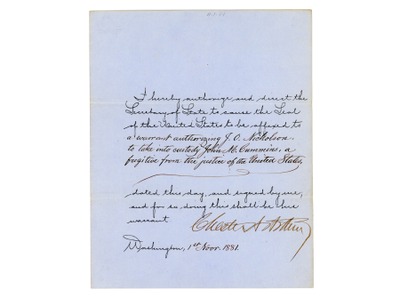 I hereby authorize and direct the
Secretary of State to cause the Seal
of the United States to be affixed to
a warrant authorizing J. O. Nicholson
to take into custody John M. Cummins, a
fugitive from the justice of the United States,
dated this day, and signed by me,
and for so doing this shall be his
warrant.
Chester A. Arthur
Washington, 1st Nov. 1881.